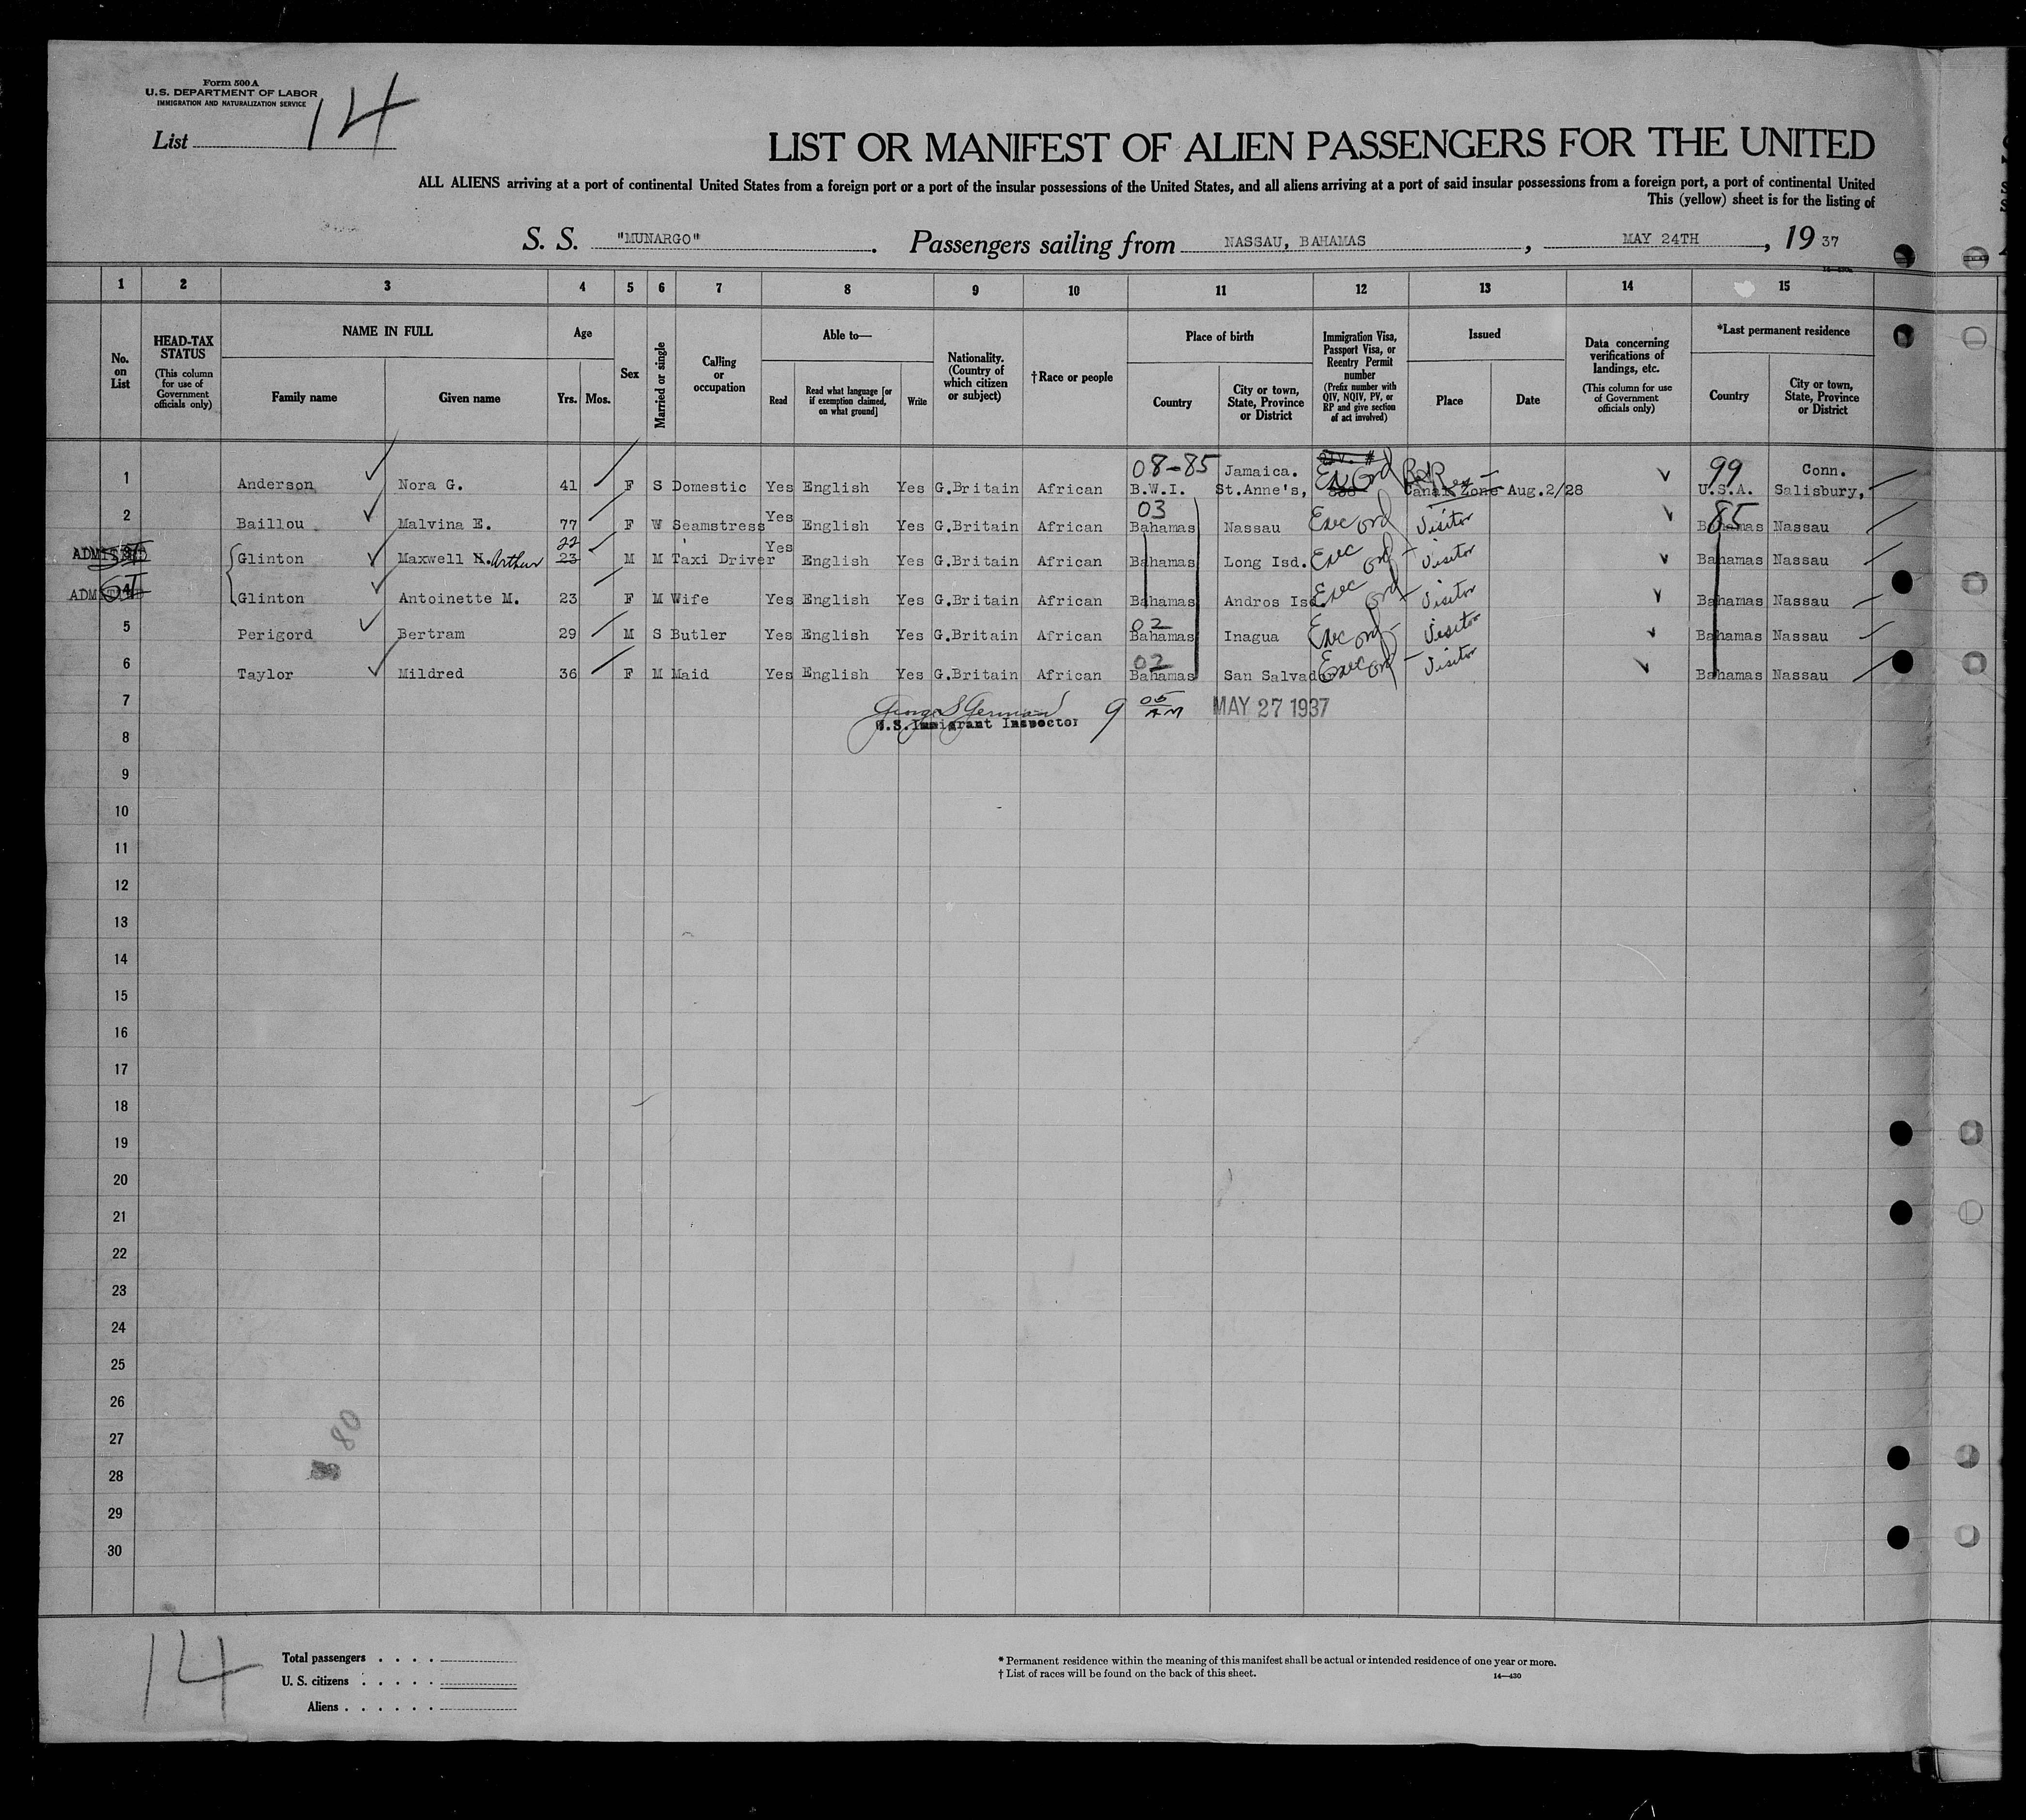 Form 500 A
U.S. DEPARTMENT OF LABOR
IMMIGRATION AND NATURALIZATION SERVICE
List 14
LIST OR MANIFEST OF ALIEN PASSENGERS FOR THE UNITED
ALL ALIENS arriving at a port of continental United States from a foreign port or a port of the insular possessions of the United States, and all aliens arriving at a port of said insular possessions from a foreign port, a port of continental United
This (yellow) sheet is for the listing of
S. S. "MUNARGO". Passengers sailing from NASSAU, BAHAMAS, MAY 24TH, 19 37
1 2 3 4 5 6 7 8 9 10 11 12 13 14 15
No. on List
HEAD-TAX STATUS
(This column for use of Government officials only)
NAME IN FULL
Family name
Given name
Age
Yrs.
Mos.
Sex
Married or single
Calling or occupation
Able to—
Read
Read what language [or if exemption claimed, on what ground]
Write
Nationality. (Country of which citizen or subject)
†Race or people
Place of birth
Country
City or town, State, Province or District
Immigration Visa, Passport Visa, or Reentry Permit number
(Prefix number with QIV, NQIV, PV, or RP and give section of act involved)
Issued
Place
Date
Data concerning verifications of landings, etc.
(This column for use of Government officials only)
*Last permanent residence
Country
City or town, State, Province or District
08-85 Jamaica. 99 Conn.
1 Anderson Nora G. 41 F S Domestic Yes English Yes G.Britain African B.W.I. St.Anne's, Canal Zone Aug.2/28 U.S.A. Salisbury,
03 85
2 Baillou Malvina E. 77 F W Seamstress Yes English Yes G.Britain African Bahamas Nassau Exec ord Visitor Bahamas Nassau
22
ADMITTED Glinton Maxwell H. Arthur 23 M M Taxi Driver Yes English Yes G.Britain African Bahamas Long Isd. Exec ord Visitor Bahamas Nassau
ADMITTED 4 Glinton Antoinette M. 23 F M Wife Yes English Yes G.Britain African Bahamas Andros Isd. Exec ord Visitor Bahamas Nassau
02
5 Perigord Bertram 29 M S Butler Yes English Yes G.Britain African Bahamas Inagua Exec ord Visitor Bahamas Nassau
02
6 Taylor Mildred 36 F M Maid Yes English Yes G.Britain African Bahamas San Salvador Exec ord Visitor Bahamas Nassau
7 9 05 AM MAY 27 1937
U.S. Immigrant Inspector
8
9
10
11
12
13
14
15
16
17
18
19
20
21
22
23
24
25
26
27
80
28
29
30
14
Total passengers . . . .
U. S. citizens . . . . .
Aliens . . . . . .
* Permanent residence within the meaning of this manifest shall be actual or intended residence of one year or more.
† List of races will be found on the back of this sheet.
14—430